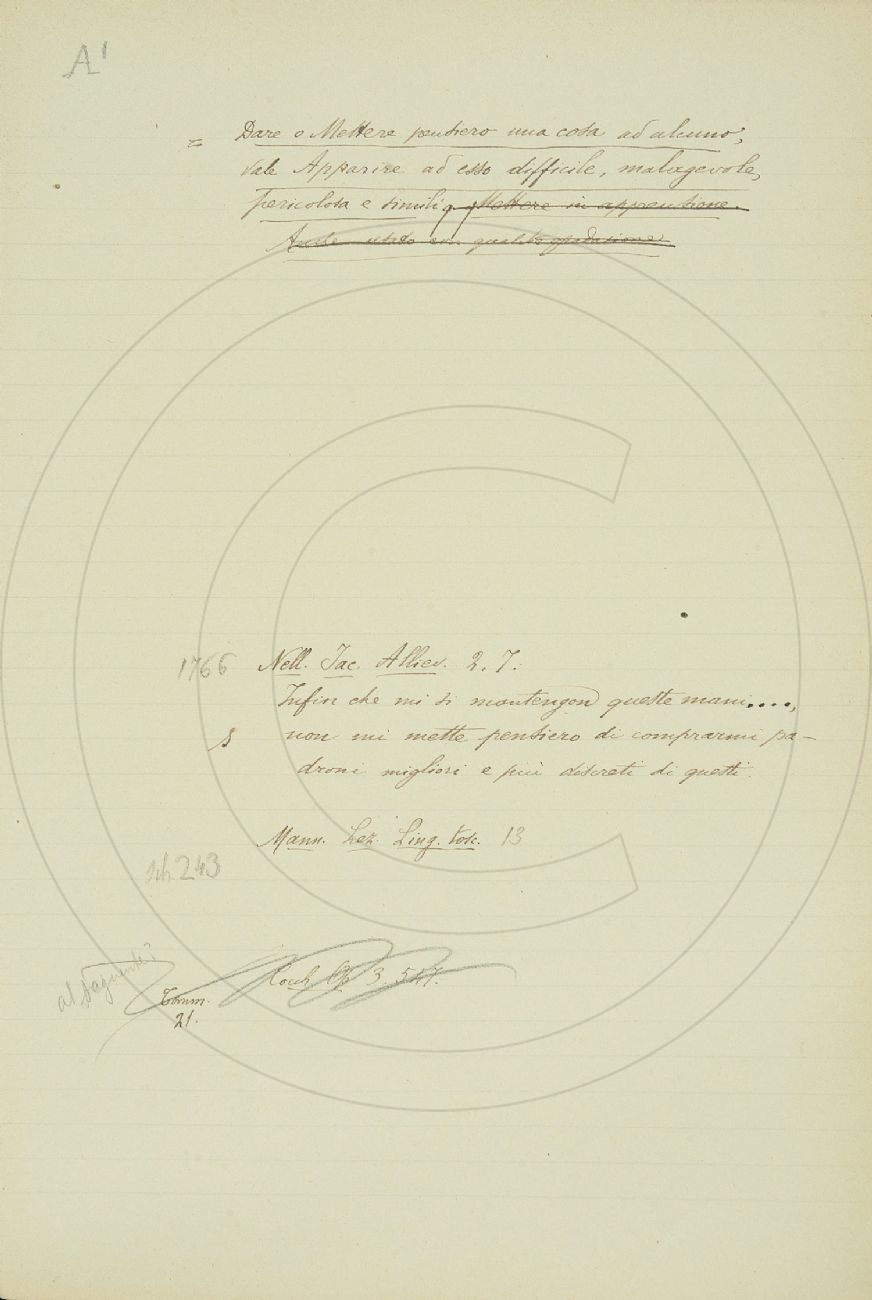 A'
= Dare o Mettere pensiero una cosa ad alcuno;
vale Apparire ad esso difficile, malagevole,
pericolosa e simili. Mettere in apprensione.
Anche usato con qualche
1766 Nell. Jac. Alliev. 2, 7:
Infin che mi si mantengon queste mani....,
§ non mi mette pensiero di comprarmi pa-
droni migliori e più discreti di questi.
Mann. Lez. Ling. tosc. 13
243
al seguente
Cocch. Op. 3. 547.
Tomm.
21.